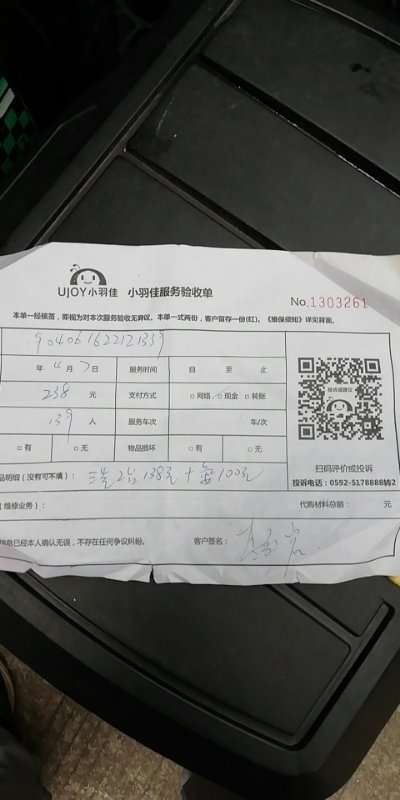 UJOY小羽佳 小羽佳服务验收单
No.1303261
本单一经核签,即视为对本次服务验收无异议。本单一式两份,客户留存一份(红)。《维保须知》详见背面。
904061622121339
年 4月7日 服务时间 自 至 止
238 元 支付方式 □网络 □现金 □转账
139 人 服务车次 车/次
□有 □无 物品损坏 □有 □无
投诉或建议
扫码评价或投诉
品明细(没有可不填): 洗2台138元+氟100元
投诉电话:0592-5178888转2
(维修业务): 代购材料总额: 元
已经本人确认无误,不存在任何争议纠纷。 客户签名: